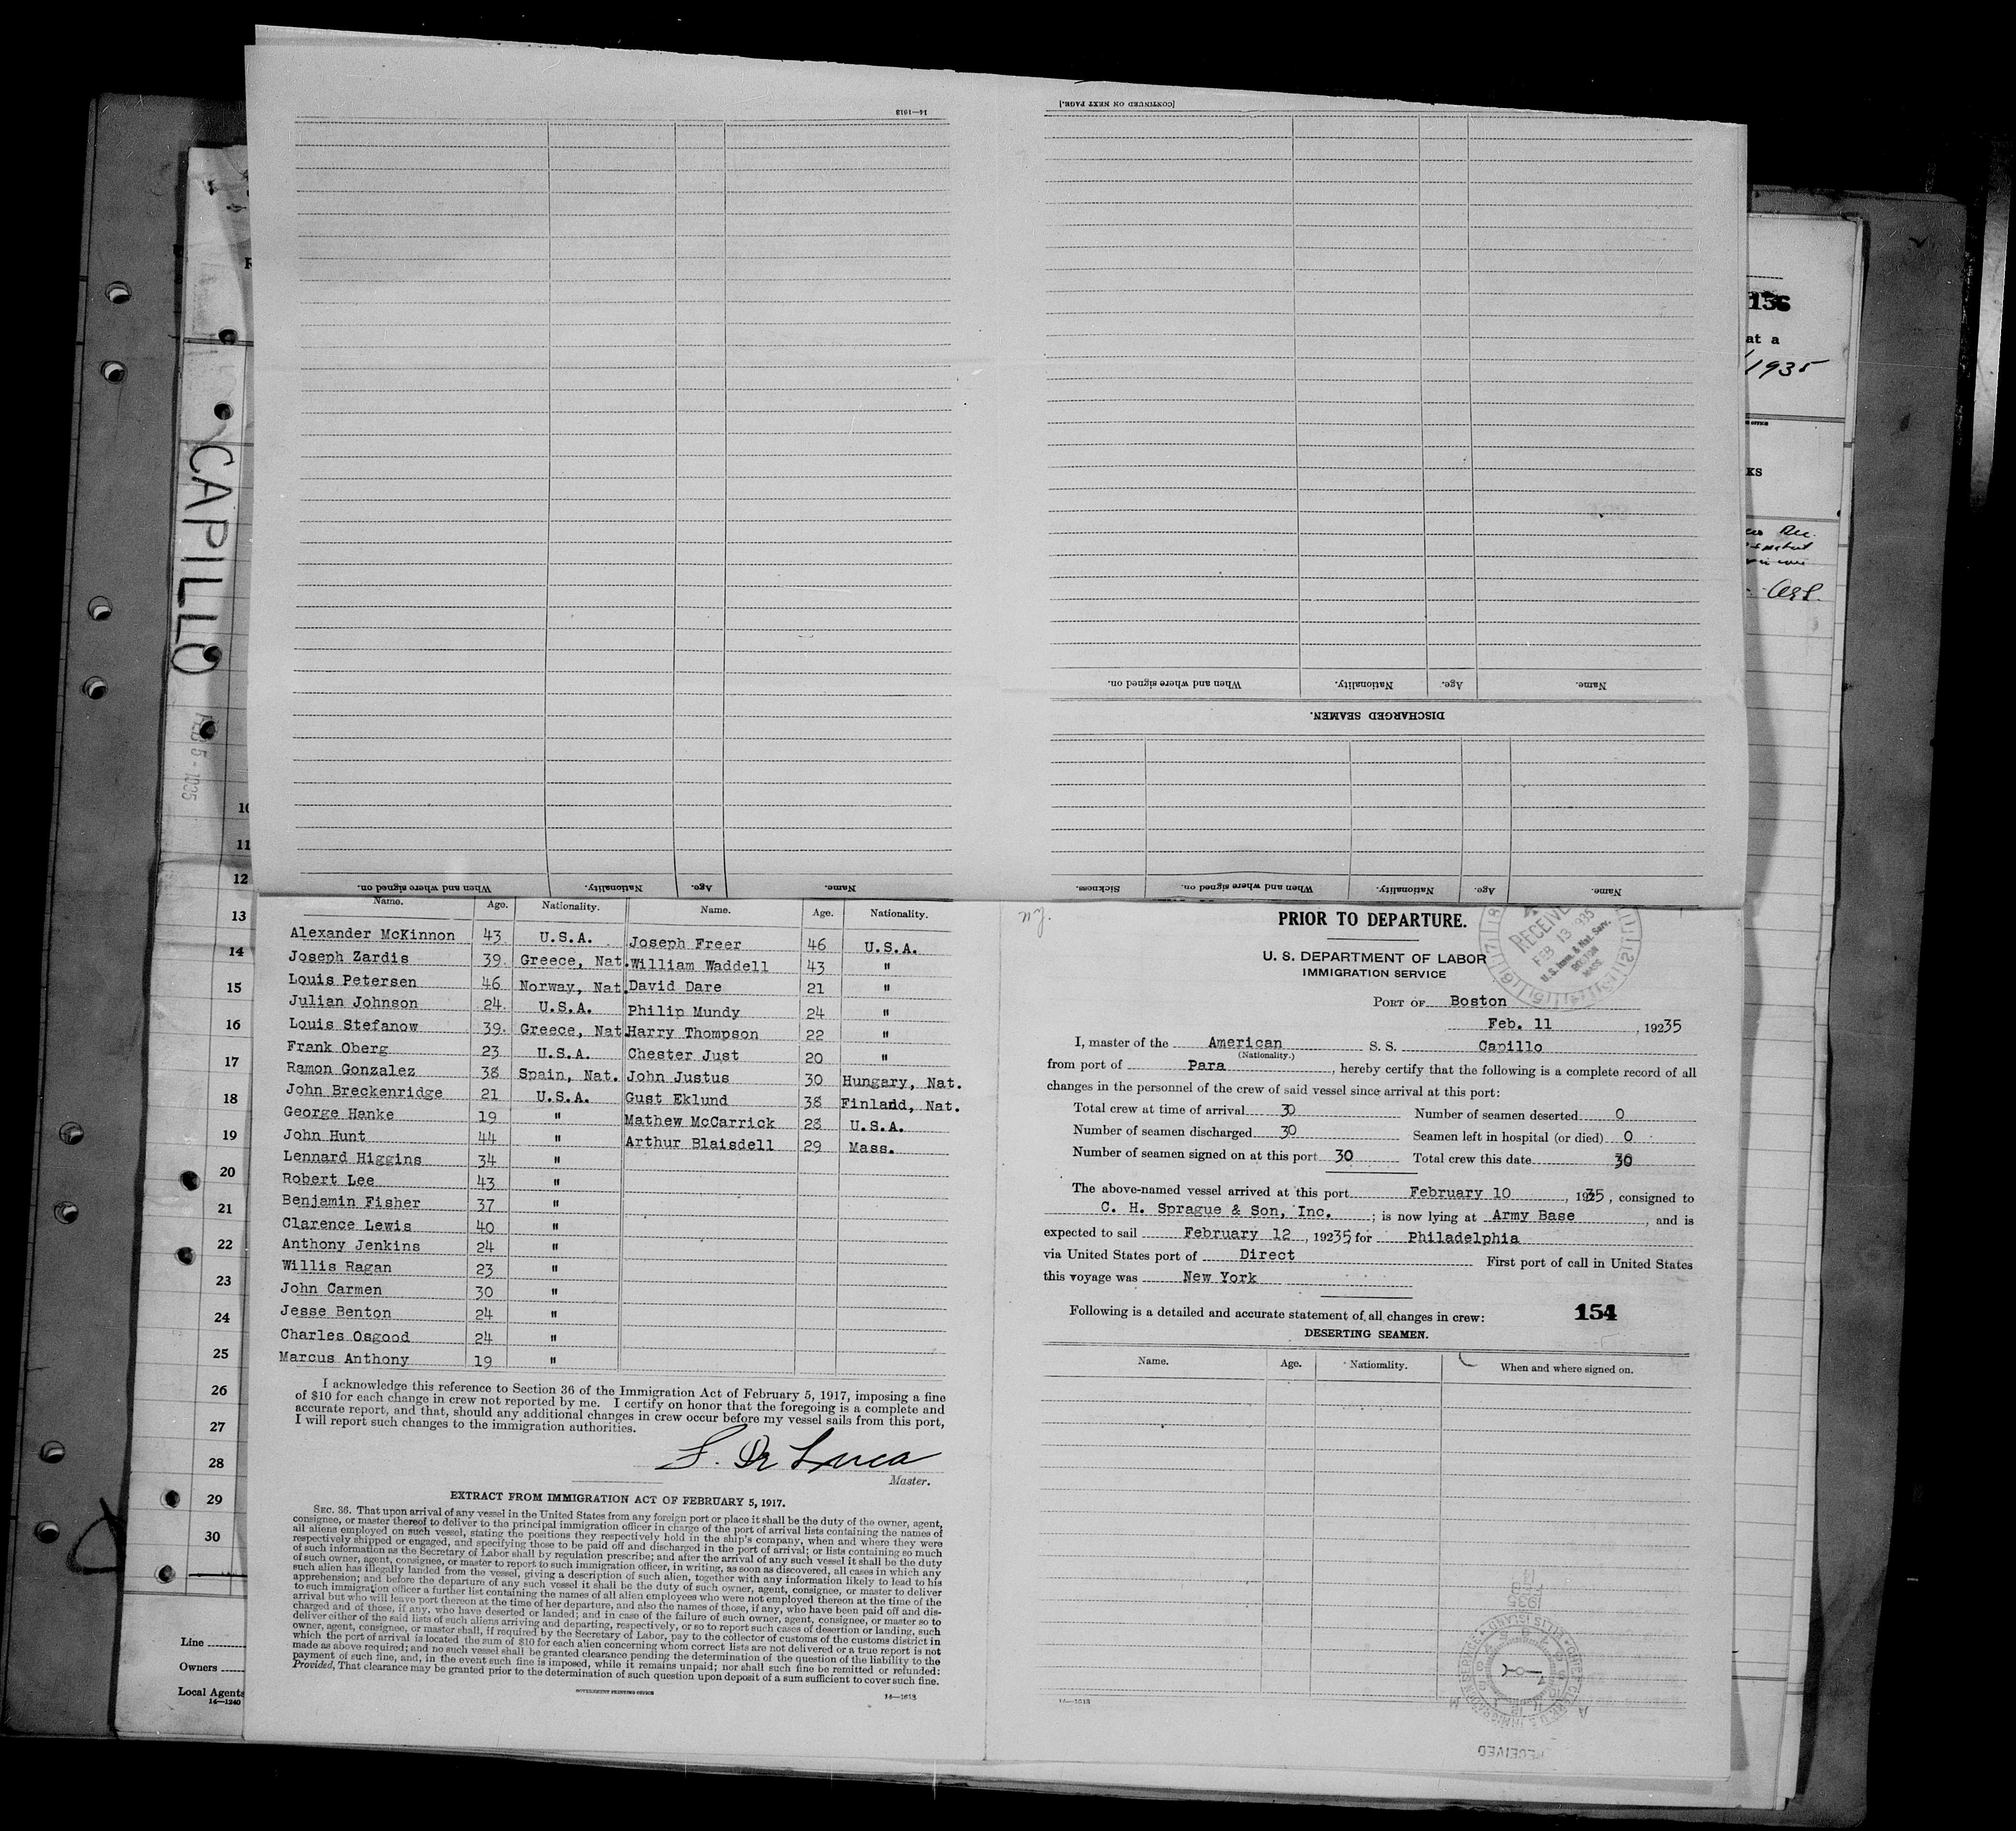 14—1613
[CONTINUED ON NEXT PAGE.]
Name.
Age.
Nationality.
When and where signed on.
DISCHARGED SEAMEN.
Name
Age.
Nationality.
When and where signed on.
Sickness.
Name.
Age.
Nationality.
When and where signed on.
CAPILLO
FEB 5 - 1935
136
at a
1935
KS
10
11
12
13
14
15
16
17
18
19
20
21
22
23
24
25
26
27
28
29
30
Line
Owners
Local Agents
14—1240
Name. Age. Nationality. Name. Age. Nationality.
Alexander McKinnon 43 U.S.A. Joseph Freer 46 U.S.A.
Joseph Zardis 39. Greece, Nat. William Waddell 43 "
Louis Petersen 46 Norway, Nat. David Dare 21 "
Julian Johnson 24. U.S.A. Philip Mundy 24 "
Louis Stefanow 39. Greece, Nat. Harry Thompson 22 "
Frank Oberg 23 U.S.A. Chester Just 20 "
Ramon Gonzalez 38 Spain, Nat. John Justus 30 Hungary, Nat.
John Breckenridge 21 U.S.A. Gust Eklund 38 Finland, Nat.
George Hanke 19 " Mathew McCarrick 28 U.S.A.
John Hunt 44 " Arthur Blaisdell 29 Mass.
Lennard Higgins 34 "
Robert Lee 43 "
Benjamin Fisher 37 "
Clarence Lewis 40 "
Anthony Jenkins 24 "
Willis Ragan 23 "
John Carmen 30 "
Jesse Benton 24 "
Charles Osgood 24 "
Marcus Anthony 19 "
I acknowledge this reference to Section 36 of the Immigration Act of February 5, 1917, imposing a fine
of $10 for each change in crew not reported by me. I certify on honor that the foregoing is a complete and
accurate report, and that, should any additional changes in crew occur before my vessel sails from this port,
I will report such changes to the immigration authorities.
S. De Luca
Master.
EXTRACT FROM IMMIGRATION ACT OF FEBRUARY 5, 1917.
SEC. 36. That upon arrival of any vessel in the United States from any foreign port or place it shall be the duty of the owner, agent,
consignee, or master thereof to deliver to the principal immigration officer in charge of the port of arrival lists containing the names of
all aliens employed on such vessel, stating the positions they respectively hold in the ship's company, when and where they were
respectively shipped or engaged, and specifying those to be paid off and discharged in the port of arrival; or lists containing so much
of such information as the Secretary of Labor shall by regulation prescribe; and after the arrival of any such vessel it shall be the duty
of such owner, agent, consignee, or master to report to such immigration officer, in writing, as soon as discovered, all cases in which any
such alien has illegally landed from the vessel, giving a description of such alien, together with any information likely to lead to his
apprehension; and before the departure of any such vessel it shall be the duty of such owner, agent, consignee, or master to deliver
to such immigration officer a further list containing the names of all alien employees who were not employed thereon at the time of the
arrival but who will leave port thereon at the time of her departure, and also the names of those, if any, who have been paid off and dis-
charged and of those, if any, who have deserted or landed; and in case of the failure of such owner, agent, consignee, or master so to
deliver either of the said lists of such aliens arriving and departing, respectively, or so to report such cases of desertion or landing, such
owner, agent, consignee, or master shall, if required by the Secretary of Labor, pay to the collector of customs of the customs district in
which the port of arrival is located the sum of $10 for each alien concerning whom correct lists are not delivered or a true report is not
made as above required; and no such vessel shall be granted clearance pending the determination of the question of the liability to the
payment of such fine, and, in the event such fine is imposed, while it remains unpaid; nor shall such fine be remitted or refunded:
Provided, That clearance may be granted prior to the determination of such question upon deposit of a sum sufficient to cover such fine.
GOVERNMENT PRINTING OFFICE
14—1613
PRIOR TO DEPARTURE.
U. S. DEPARTMENT OF LABOR
IMMIGRATION SERVICE
RECEIVED
FEB 13 1935
U. S. Imm. & Nat. Serv.
BOSTON
MASS.
PORT OF Boston
Feb. 11, 1935
I, master of the American S. S. Capillo
(Nationality.)
from port of Para, hereby certify that the following is a complete record of all
changes in the personnel of the crew of said vessel since arrival at this port:
Total crew at time of arrival 30 Number of seamen deserted 0
Number of seamen discharged 30 Seamen left in hospital (or died) 0
Number of seamen signed on at this port 30 Total crew this date 30
The above-named vessel arrived at this port February 10, 1935, consigned to
C. H. Sprague & Son, Inc.; is now lying at Army Base, and is
expected to sail February 12, 19235 for Philadelphia
via United States port of Direct First port of call in United States
this voyage was New York
Following is a detailed and accurate statement of all changes in crew: 154
DESERTING SEAMEN.
Name. Age. Nationality. When and where signed on.
1935
FEB
14—1613
RECEIVED